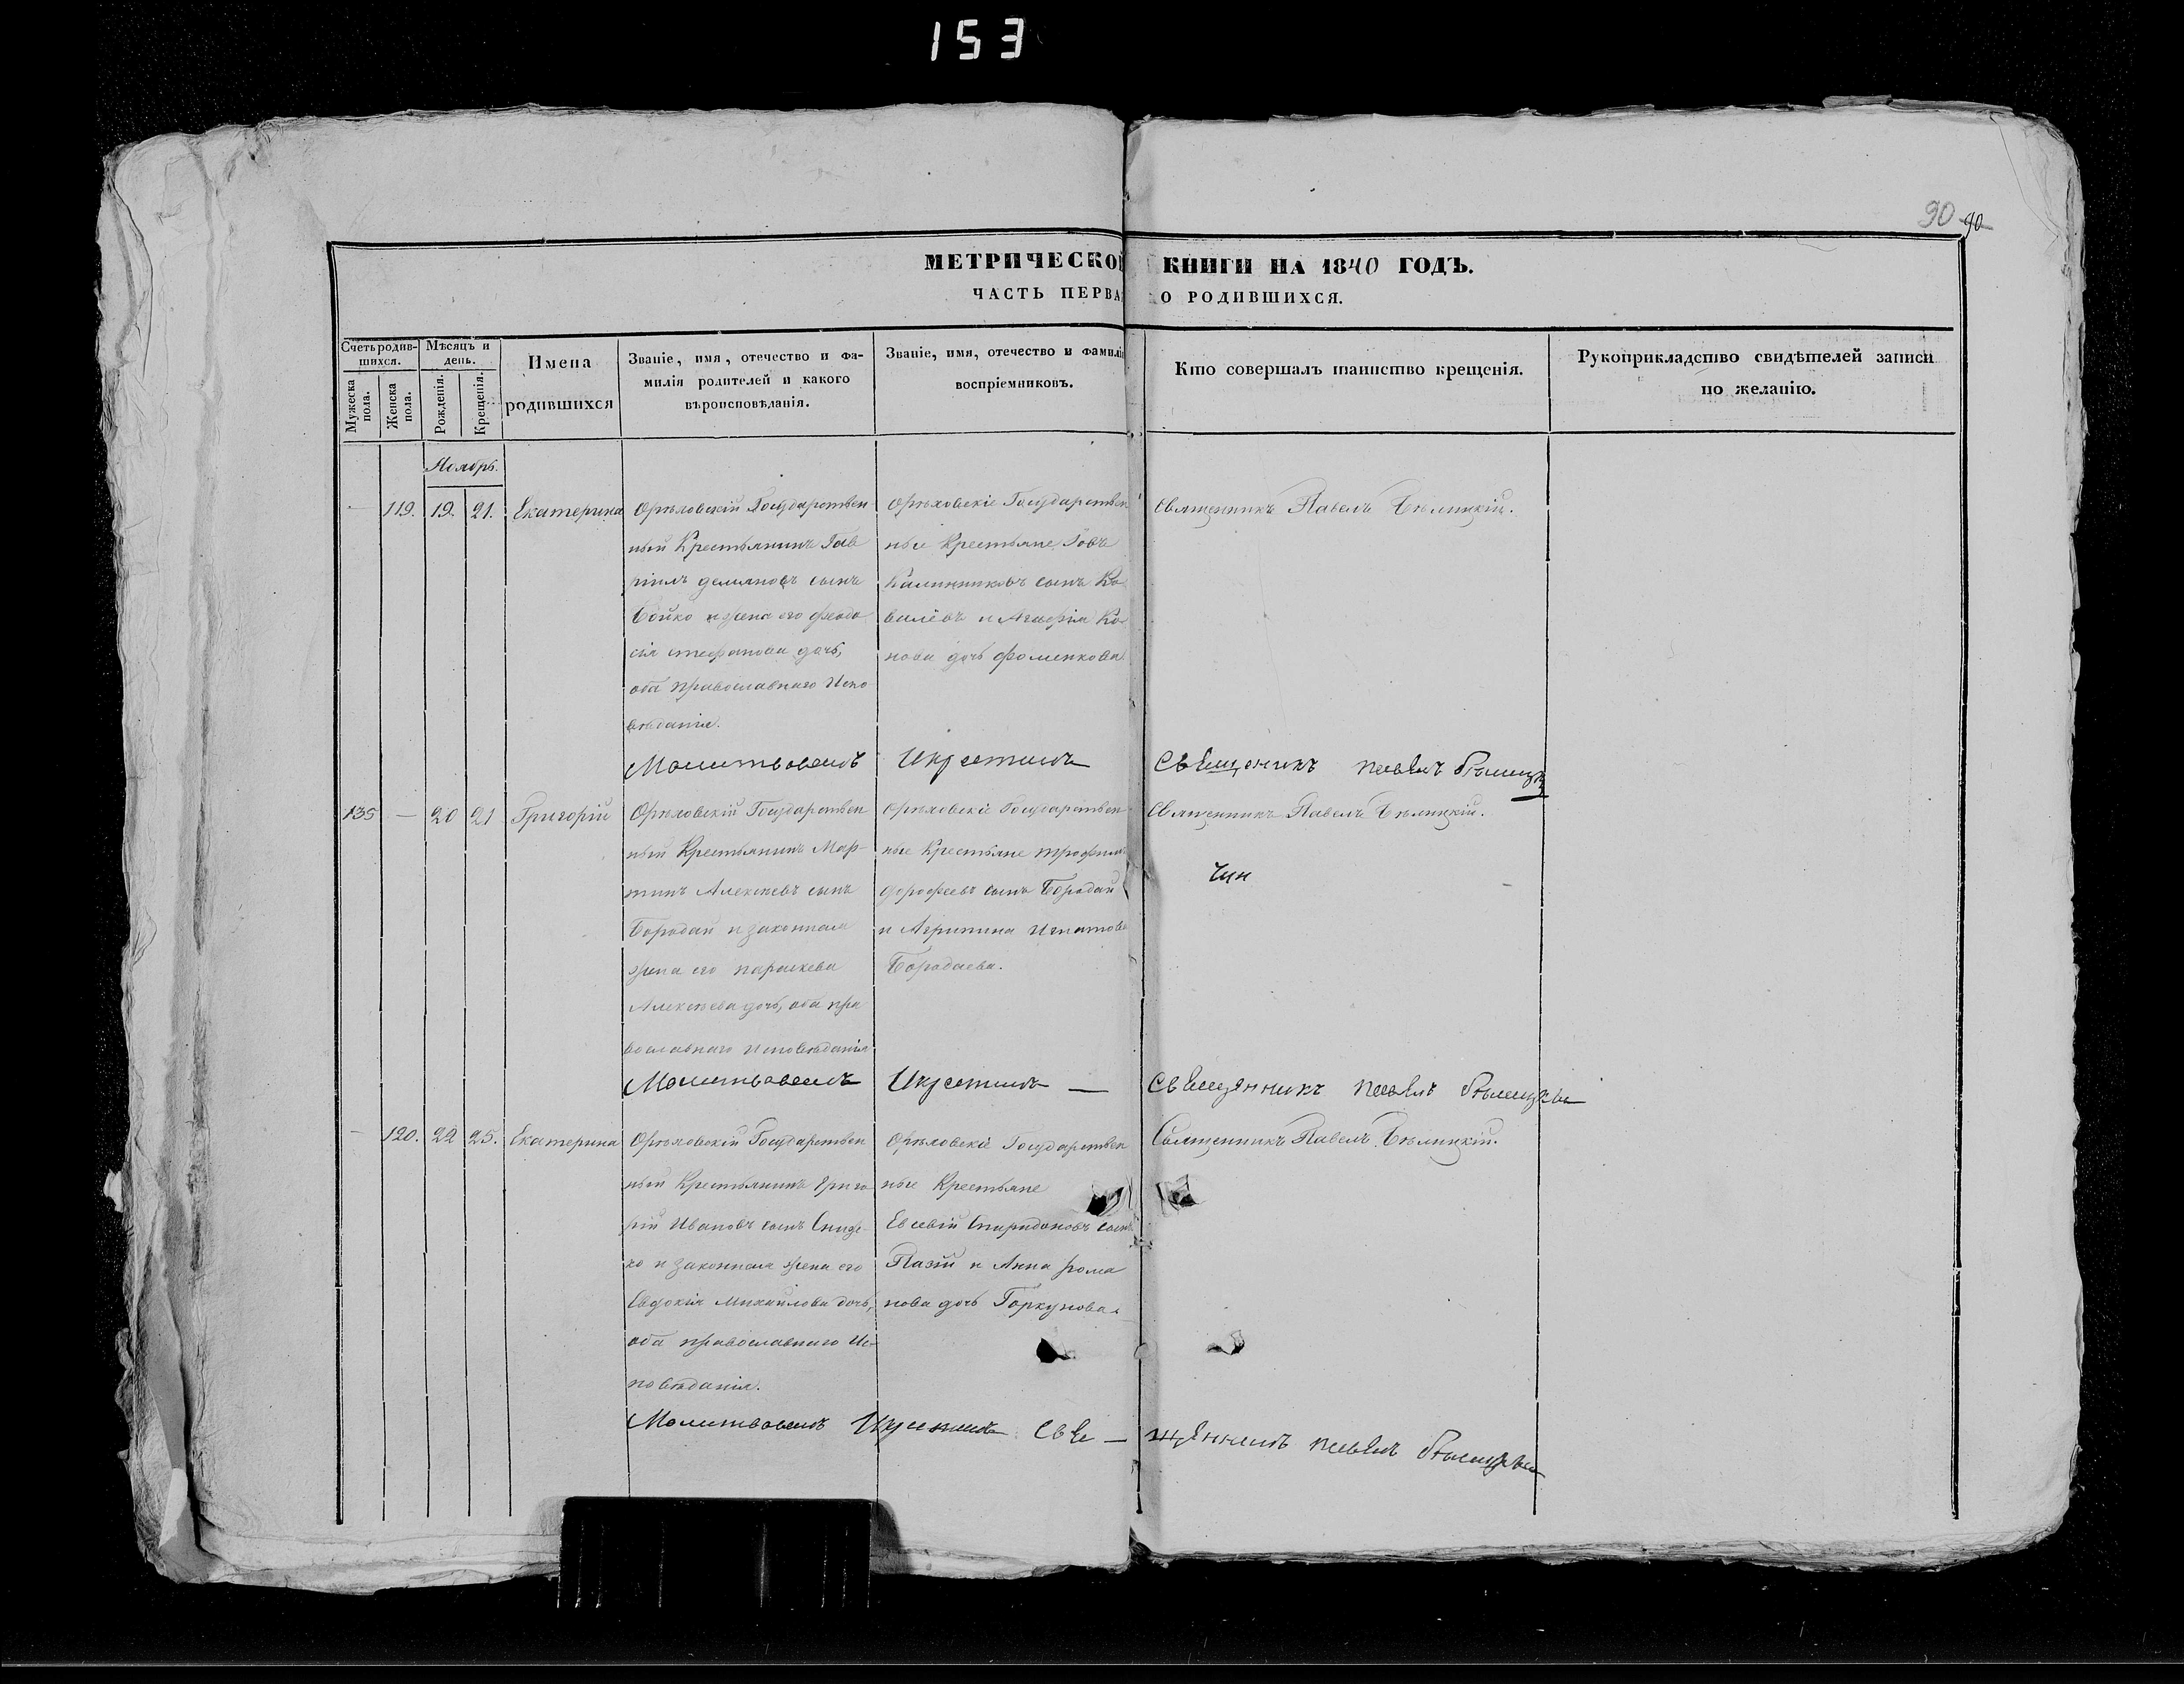 153
90 90
МЕТРИЧЕСКОЙ КНИГИ НА 1840 ГОДЪ.
ЧАСТЬ ПЕРВА О РОДИВШИХСЯ.
Счетъ родив-
шихся.
Мужеска пола.
Женска пола.
Мѣсяцъ и
день.
Рожденія.
Крещенія.
Имена
родившихся
Званіе, имя, отечество и фа-
милія родителей и какого
вѣроисповѣданія.
Званіе, имя, отечество и фамилі
воспріемниковъ.
Кто совершалъ таинство крещенія.
Рукоприкладство свидѣтелей записи
по желанію.
Ноябрь.
— 119. 19. 21. Екатерина
Орѣховскій Государствен-
ный Крестьянинъ Гав
ріилъ демяновъ сынъ
Бойко и жена его феодо
сія стефанова дочь,
оба православнаго Испо
вѣданія.
Орѣховскіе Государствен
ные Крестьяне Іовъ
Калинниковъ сынъ Ко
валёвъ и Агафія Ко
нова дочь фоменкова
Священникъ Павелъ Бѣлицкій.
Молитвовалъ Икрестилъ
Свещеникъ павелъ бѣлицк
135 — 20 21 Григорій
Орѣховскій Государствен
ный Крестьянинъ Мар-
тинъ Алексѣевъ сынъ
Бородай и законная
жена его параскева
Алексѣева дочь, оба пра
вославнаго Исповѣданія
Орѣховскіе Государствен
ные Крестьяне трофимъ
дорофеевъ сынъ Бородай
и Агрипина Игнатова
Бородаева.
Священникъ Павелъ Бѣлицкій.
Молитвовалъ Икрестилъ —
Свещенникъ павелъ бѣлицкы
— 120. 22 25. Екатерина
Орѣховскій Государствен
ный Крестьянинъ Григо
рій Ивановъ сынъ
ко и законная жена его
Евдокія Михайлова дочь,
оба православнаго Ис-
повѣданія.
Орѣховскіе Государствен
ные Крестьяне
Евсевій Спиридоновъ сынъ
Пазій и Анна рома
нова дочь Горкунова.
Священникъ Павелъ Бѣлицкій.
Молитвовалъ Икрестилъ Све — павелъ бѣлицкы